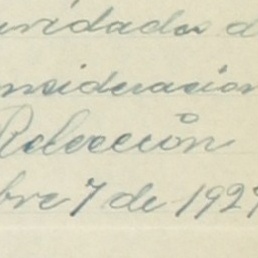 vidades d
nsideracion
Relección
bre 7 de 192